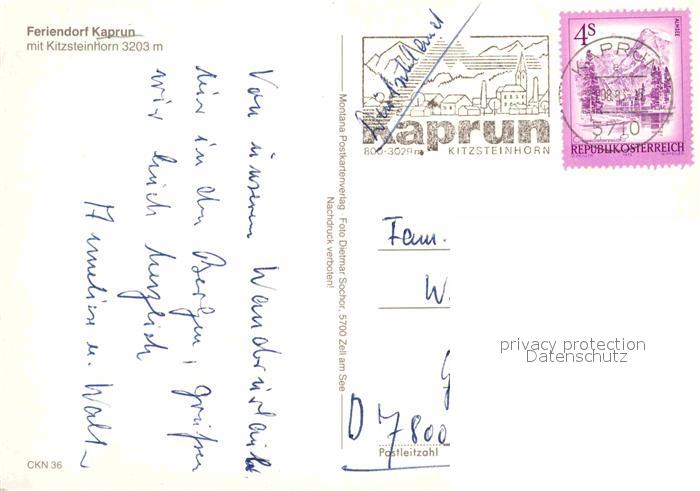 Feriendorf Kaprun
mit Kitzsteinhorn 3203 m
Von unserem Wanderurlaub
hier in den Bergen, grüßen
wir Euch herzlich
Annelise u. Walter
CKN 36
Montana Postkartenverlag Foto Dietmar Sochor, 5700 Zell am See
Nachdruck verboten!
Kaprun
800-3029m KITZSTEINHORN
4S
ALMSEE
REPUBLIK ÖSTERREICH
KAPRUN
5710
Fam.
W.
G
D 7800
Postleitzahl
privacy protection
Datenschutz